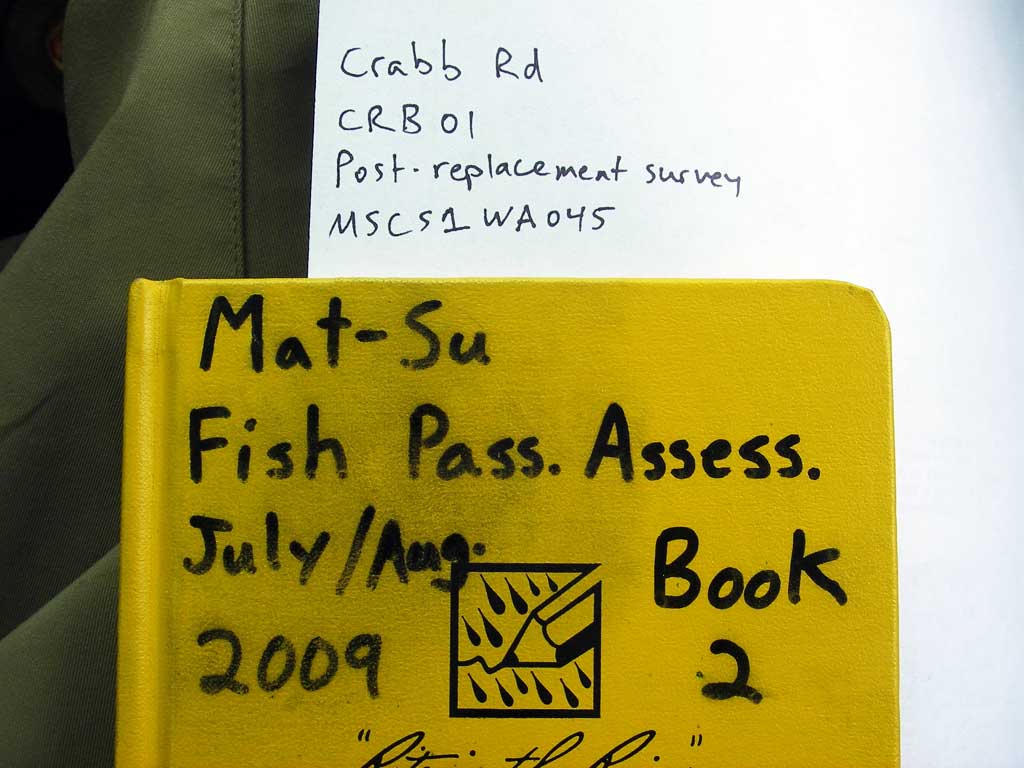 Crabb Rd
CRB 01
Post-replacement survey
MSCS1WA045
Mat-Su
Fish Pass. Assess.
July/Aug. Book
2009 2